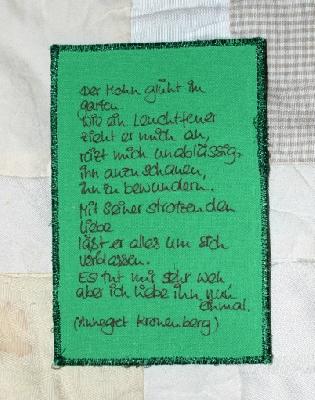 Der Mohn glüht im
Garten.
Wie ein Leuchtfeuer
zieht er mich an,
reizt mich unablässig,
ihn anzuschauen,
ihn zu bewundern.
Mit seiner strotzenden
Liebe
läßt er alles um sich
verblassen.
Es tut mir sehr weh
aber ich liebe ihn nun
einmal.
(Annegret Kronenberg)